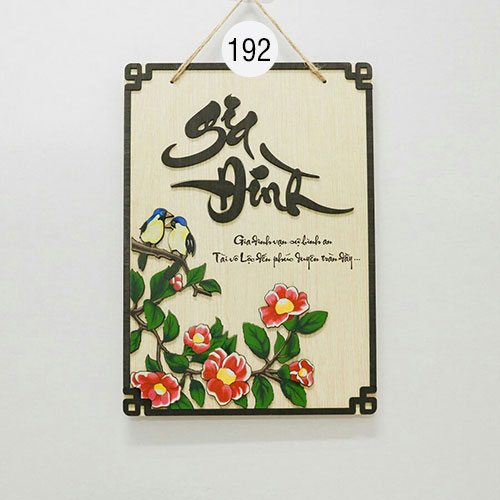 192
Gia
Đình
Gia đình vạn sự bình an
Tài vô Lộc đến phúc duyên tràn đầy...